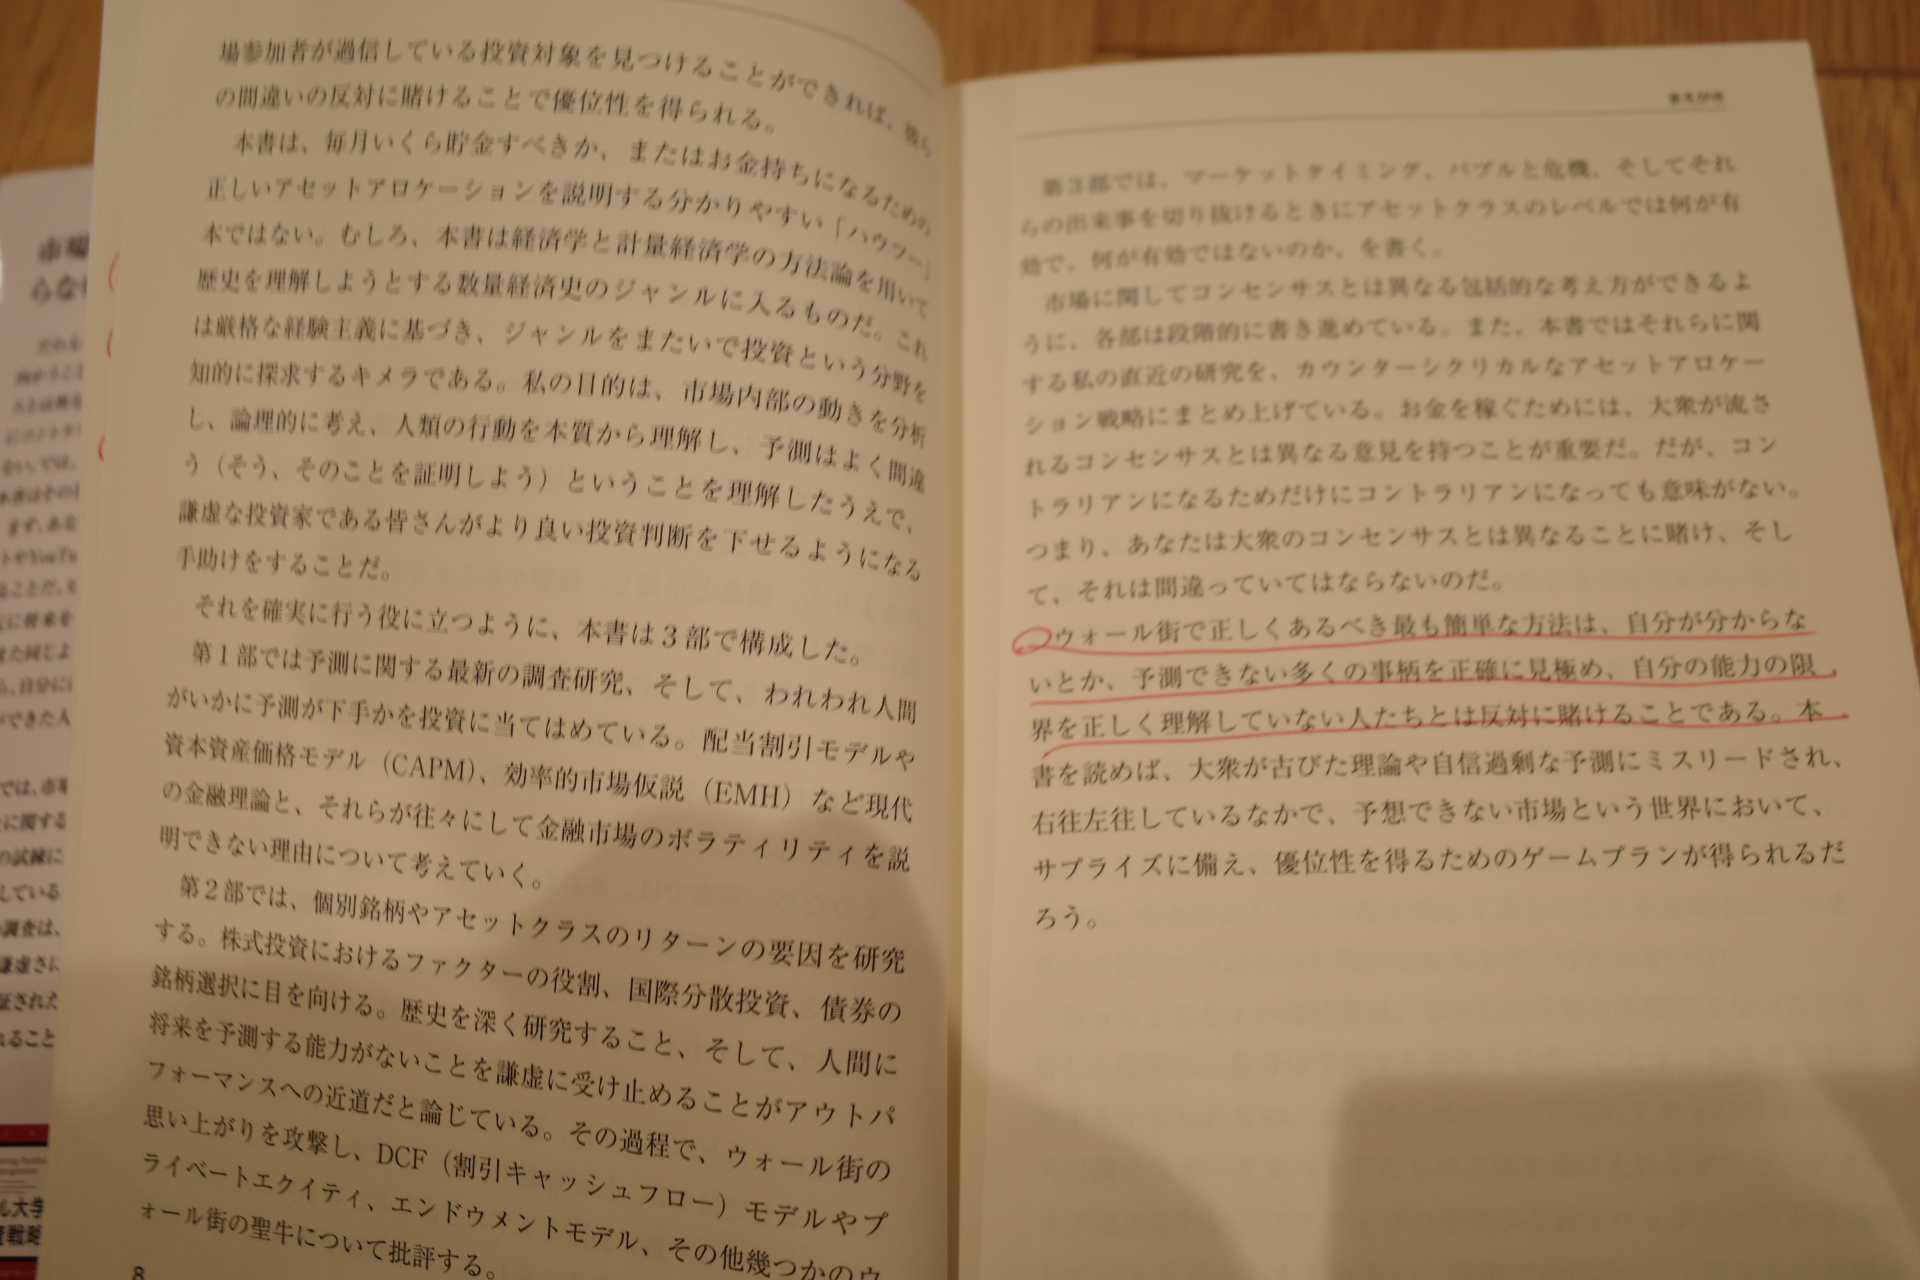 場参加者が過信している投資対象を見つけることができれば、彼ら
の間違いの反対に賭けることで優位性を得られる。
本書は、毎月いくら貯金すべきか、またはお金持ちになるための
正しいアセットアロケーションを説明する分かりやすい「ハウツー」
本ではない。むしろ、本書は経済学と計量経済学の方法論を用いて
歴史を理解しようとする数量経済史のジャンルに入るものだ。これ
は厳格な経験主義に基づき、ジャンルをまたいで投資という分野を
知的に探求するキメラである。私の目的は、市場内部の動きを分析
し、論理的に考え、人類の行動を本質から理解し、予測はよく間違
う（そう、そのことを証明しよう）ということを理解したうえで、
謙虚な投資家である皆さんがより良い投資判断を下せるようになる
手助けをすることだ。
それを確実に行う役に立つように、本書は３部で構成した。
第１部では予測に関する最新の調査研究、そして、われわれ人間
がいかに予測が下手かを投資に当てはめている。配当割引モデルや
資本資産価格モデル（CAPM）、効率的市場仮説（EMH）など現代
の金融理論と、それらが往々にして金融市場のボラティリティを説
明できない理由について考えていく。
第２部では、個別銘柄やアセットクラスのリターンの要因を研究
する。株式投資におけるファクターの役割、国際分散投資、債券の
銘柄選択に目を向ける。歴史を深く研究すること、そして、人間に
将来を予測する能力がないことを謙虚に受け止めることがアウトパ
フォーマンスへの近道だと論じている。その過程で、ウォール街の
思い上がりを攻撃し、DCF（割引キャッシュフロー）モデルやプ
ライベートエクイティ、エンドウメントモデル、その他幾つかのウ
ォール街の聖牛について批評する。
8
まえがき
第３部では、マーケットタイミング、バブルと危機、そしてそれ
らの出来事を切り抜けるときにアセットクラスのレベルでは何が有
効で、何が有効ではないのか、を書く。
市場に関してコンセンサスとは異なる包括的な考え方ができるよ
うに、各部は段階的に書き進めている。また、本書ではそれらに関
する私の直近の研究を、カウンターシクリカルなアセットアロケー
ション戦略にまとめ上げている。お金を稼ぐためには、大衆が流さ
れるコンセンサスとは異なる意見を持つことが重要だ。だが、コン
トラリアンになるためだけにコントラリアンになっても意味がない。
つまり、あなたは大衆のコンセンサスとは異なることに賭け、そし
て、それは間違っていてはならないのだ。
ウォール街で正しくあるべき最も簡単な方法は、自分が分からな
いとか、予測できない多くの事柄を正確に見極め、自分の能力の限
界を正しく理解していない人たちとは反対に賭けることである。本
書を読めば、大衆が古びた理論や自信過剰な予測にミスリードされ、
右往左往しているなかで、予想できない市場という世界において、
サプライズに備え、優位性を得るためのゲームプランが得られるだ
ろう。